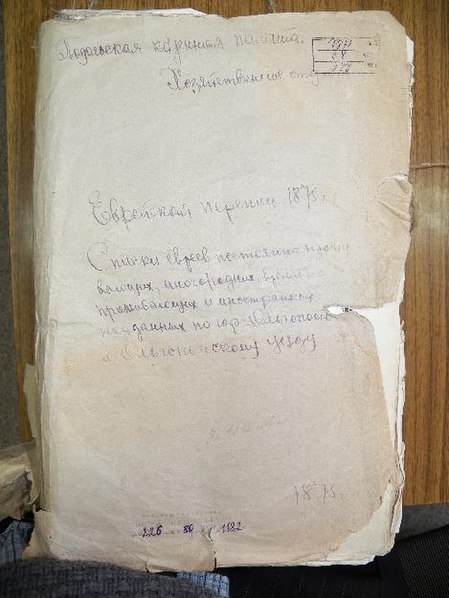 Подольская казенная палата
Хозяйственное отд
Еврейской переписи 1875 г.
Списки евреев постоянно прожи
вающих, иногородних, временно
проживающих и иностранных
подданных по гор. Ольгополю
и Ольгопольскому уезду
1875 г.
226 80 1182